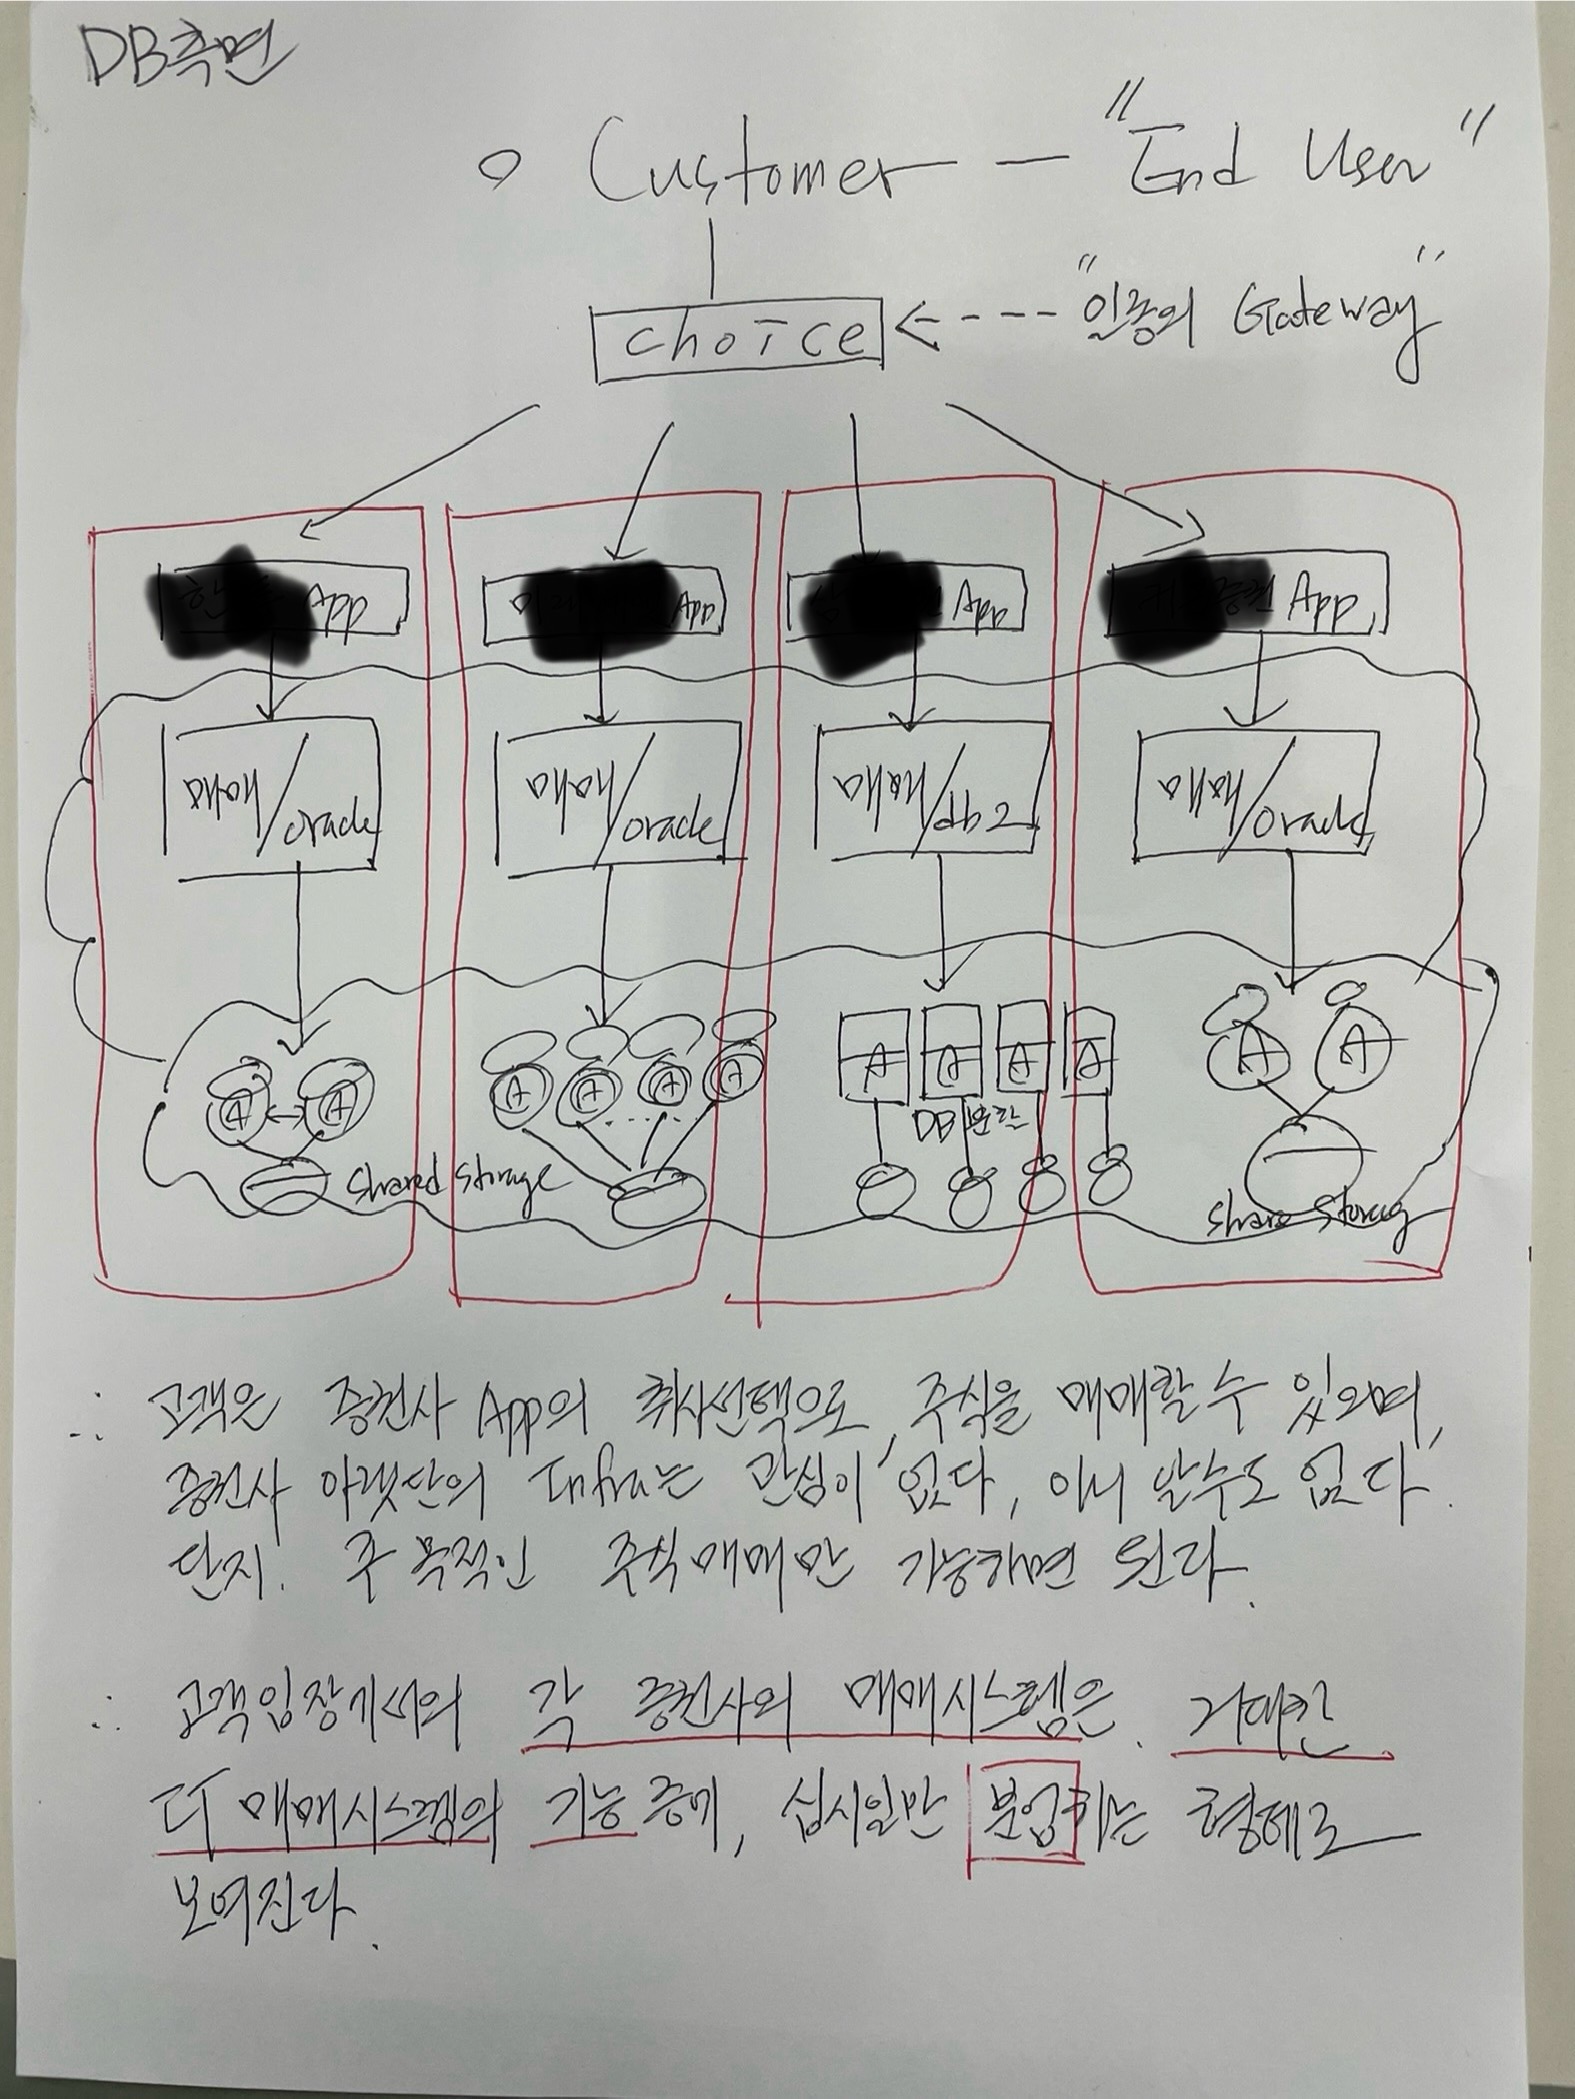 DB측면
o Customer — "End User"
choice <---- "인증의 Gateway"
App
App
App
증권 App
매매/oracle
매매/oracle
매매/db2
매매/oracle
A A
A A A A
A A A A
A A
DB분할
shared storage
share storag
∴ 고객은 증권사 App의 취사선택으로, 주식을 매매할 수 있으며,
증권사 아랫단의 Infra는 관심이 없다, 아니 알수도 없다.
단지. 주 목적인 주식매매만 가능하면 된다.
∴ 고객입장에서의 각 증권사의 매매시스템은. 거대한
더 매매시스템의 기능 중에, 십시일반 분업하는 형태로
보여진다.